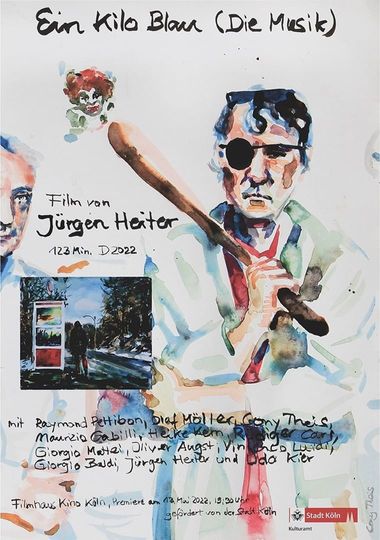 Ein Kilo Blau (Die Musik)
Film von
Jürgen Heiter
123 Min. D 2022
mit Raymond Pettibon, Olaf Möller, Gony Theis,
Maurizio Gabilli, Heike Kern, Rüdiger Carl,
Giorgio Mattei, Oliver Augst, Vincenzo
Giorgio Baldi, Jürgen Heiter und Udo Kier
Filmhaus Kino Köln, Premiere am 13. Mai 2022, 19,30 Uhr
gefördert von der Stadt Köln
Stadt Köln
Kulturamt
Gony Theis